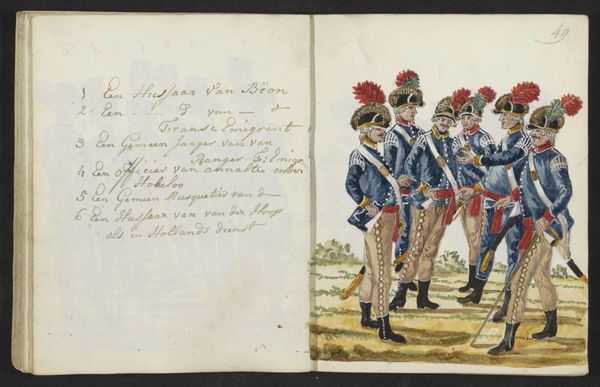 49
1 Een Hussaar van Bëon
2 Een — d° van — d°
Franse Emigrant
3 Een Gemeen Jaager van van
Ranger Fr: Emigr
4 Een officier van onder
Hoheloo
5 Een Gemeen Musquetier van d°
6 Een Hussaar van van der Hoop
als in Hollands dienst